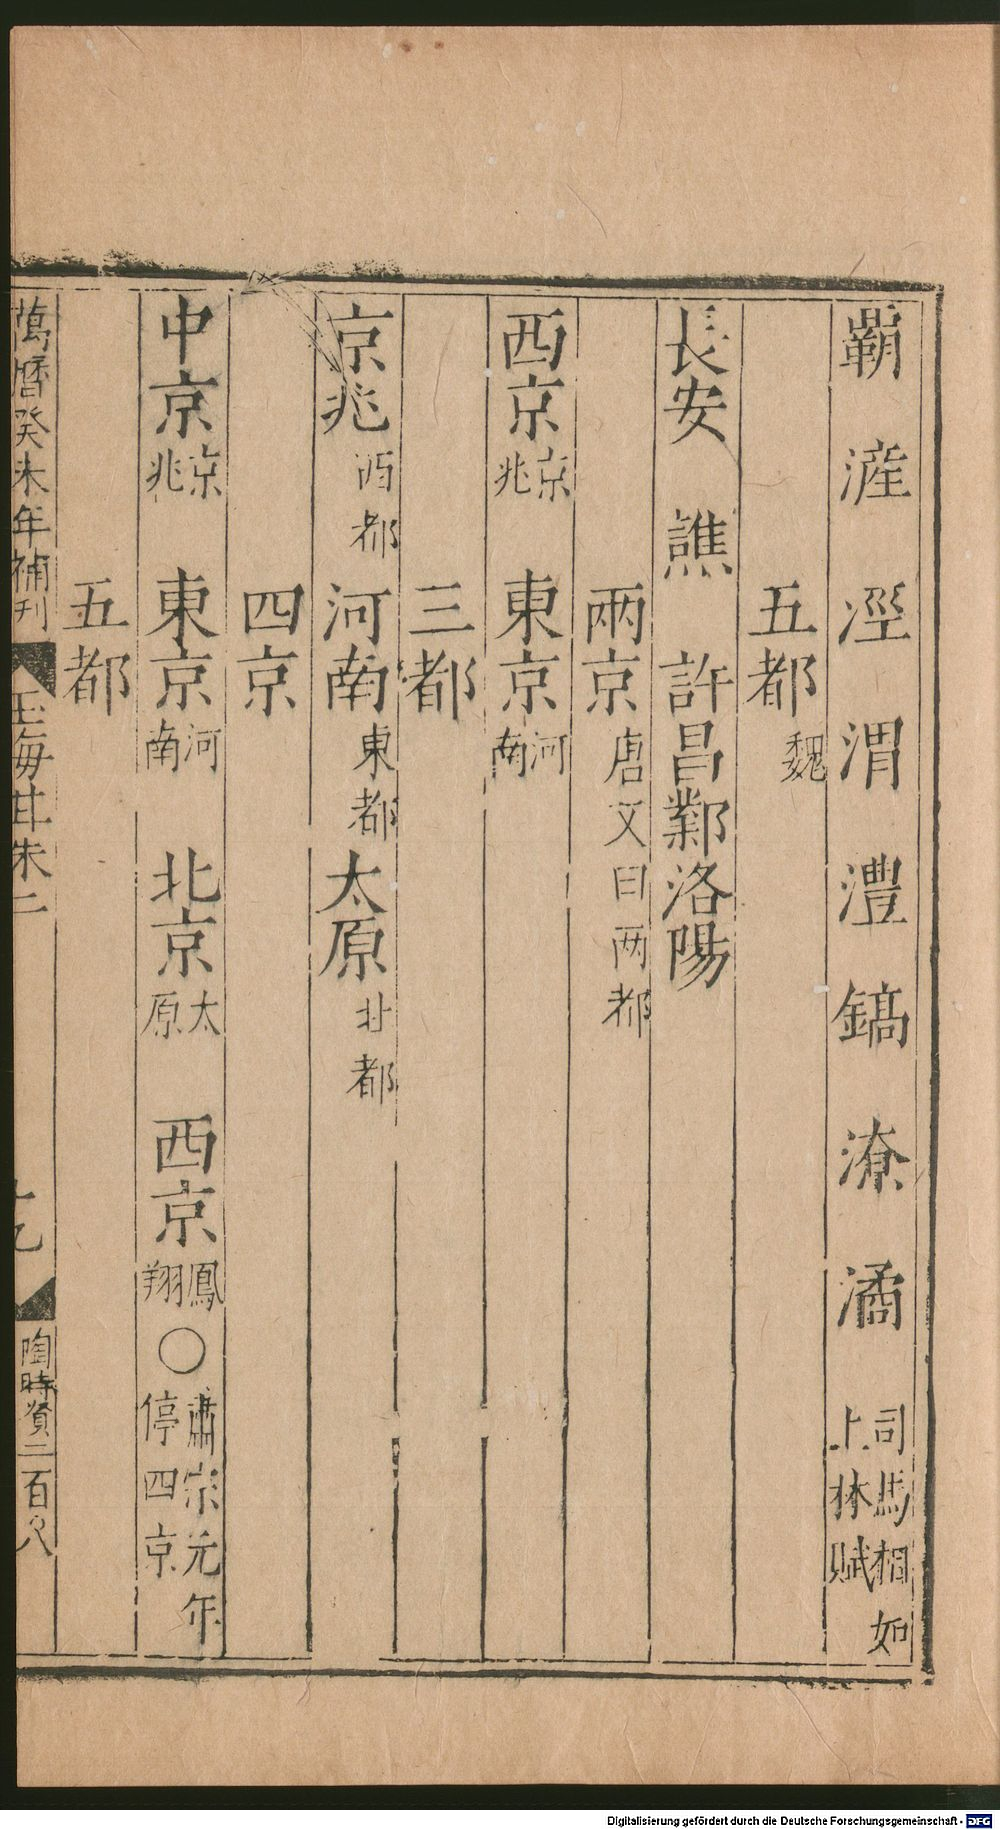 覇 滻 涇 渭 灃 鎬 潦 潏 司馬相如上林賦
五都 魏
長安 譙 許昌鄴洛陽
兩京 唐文曰两都
西京 京兆 東京 河南
三都
京兆 西都 河南 東都 太原 北都
四京
中京 京兆 東京 河南 北京 太原 西京 鳳翔 〇 肅宗元年停四京
五都
萬曆癸未年補刊 玉海卄朱二 陶時資二百
Digitalisierung gefördert durch die Deutsche Forschungsgemeinschaft - DFG